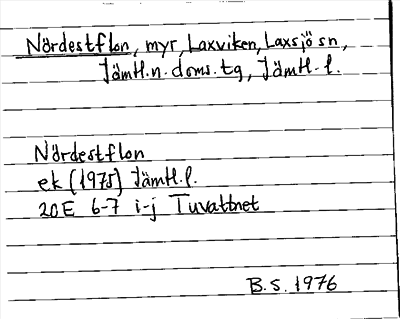 Nördestflon, myr, Laxviken, Laxsjö sn,
Jämtl.n. doms.tg, Jämtl. l.
Nördestflon
ek (1975) Jämtl. l.
20E 6-7 i-j Tuvattnet
B.S. 1976